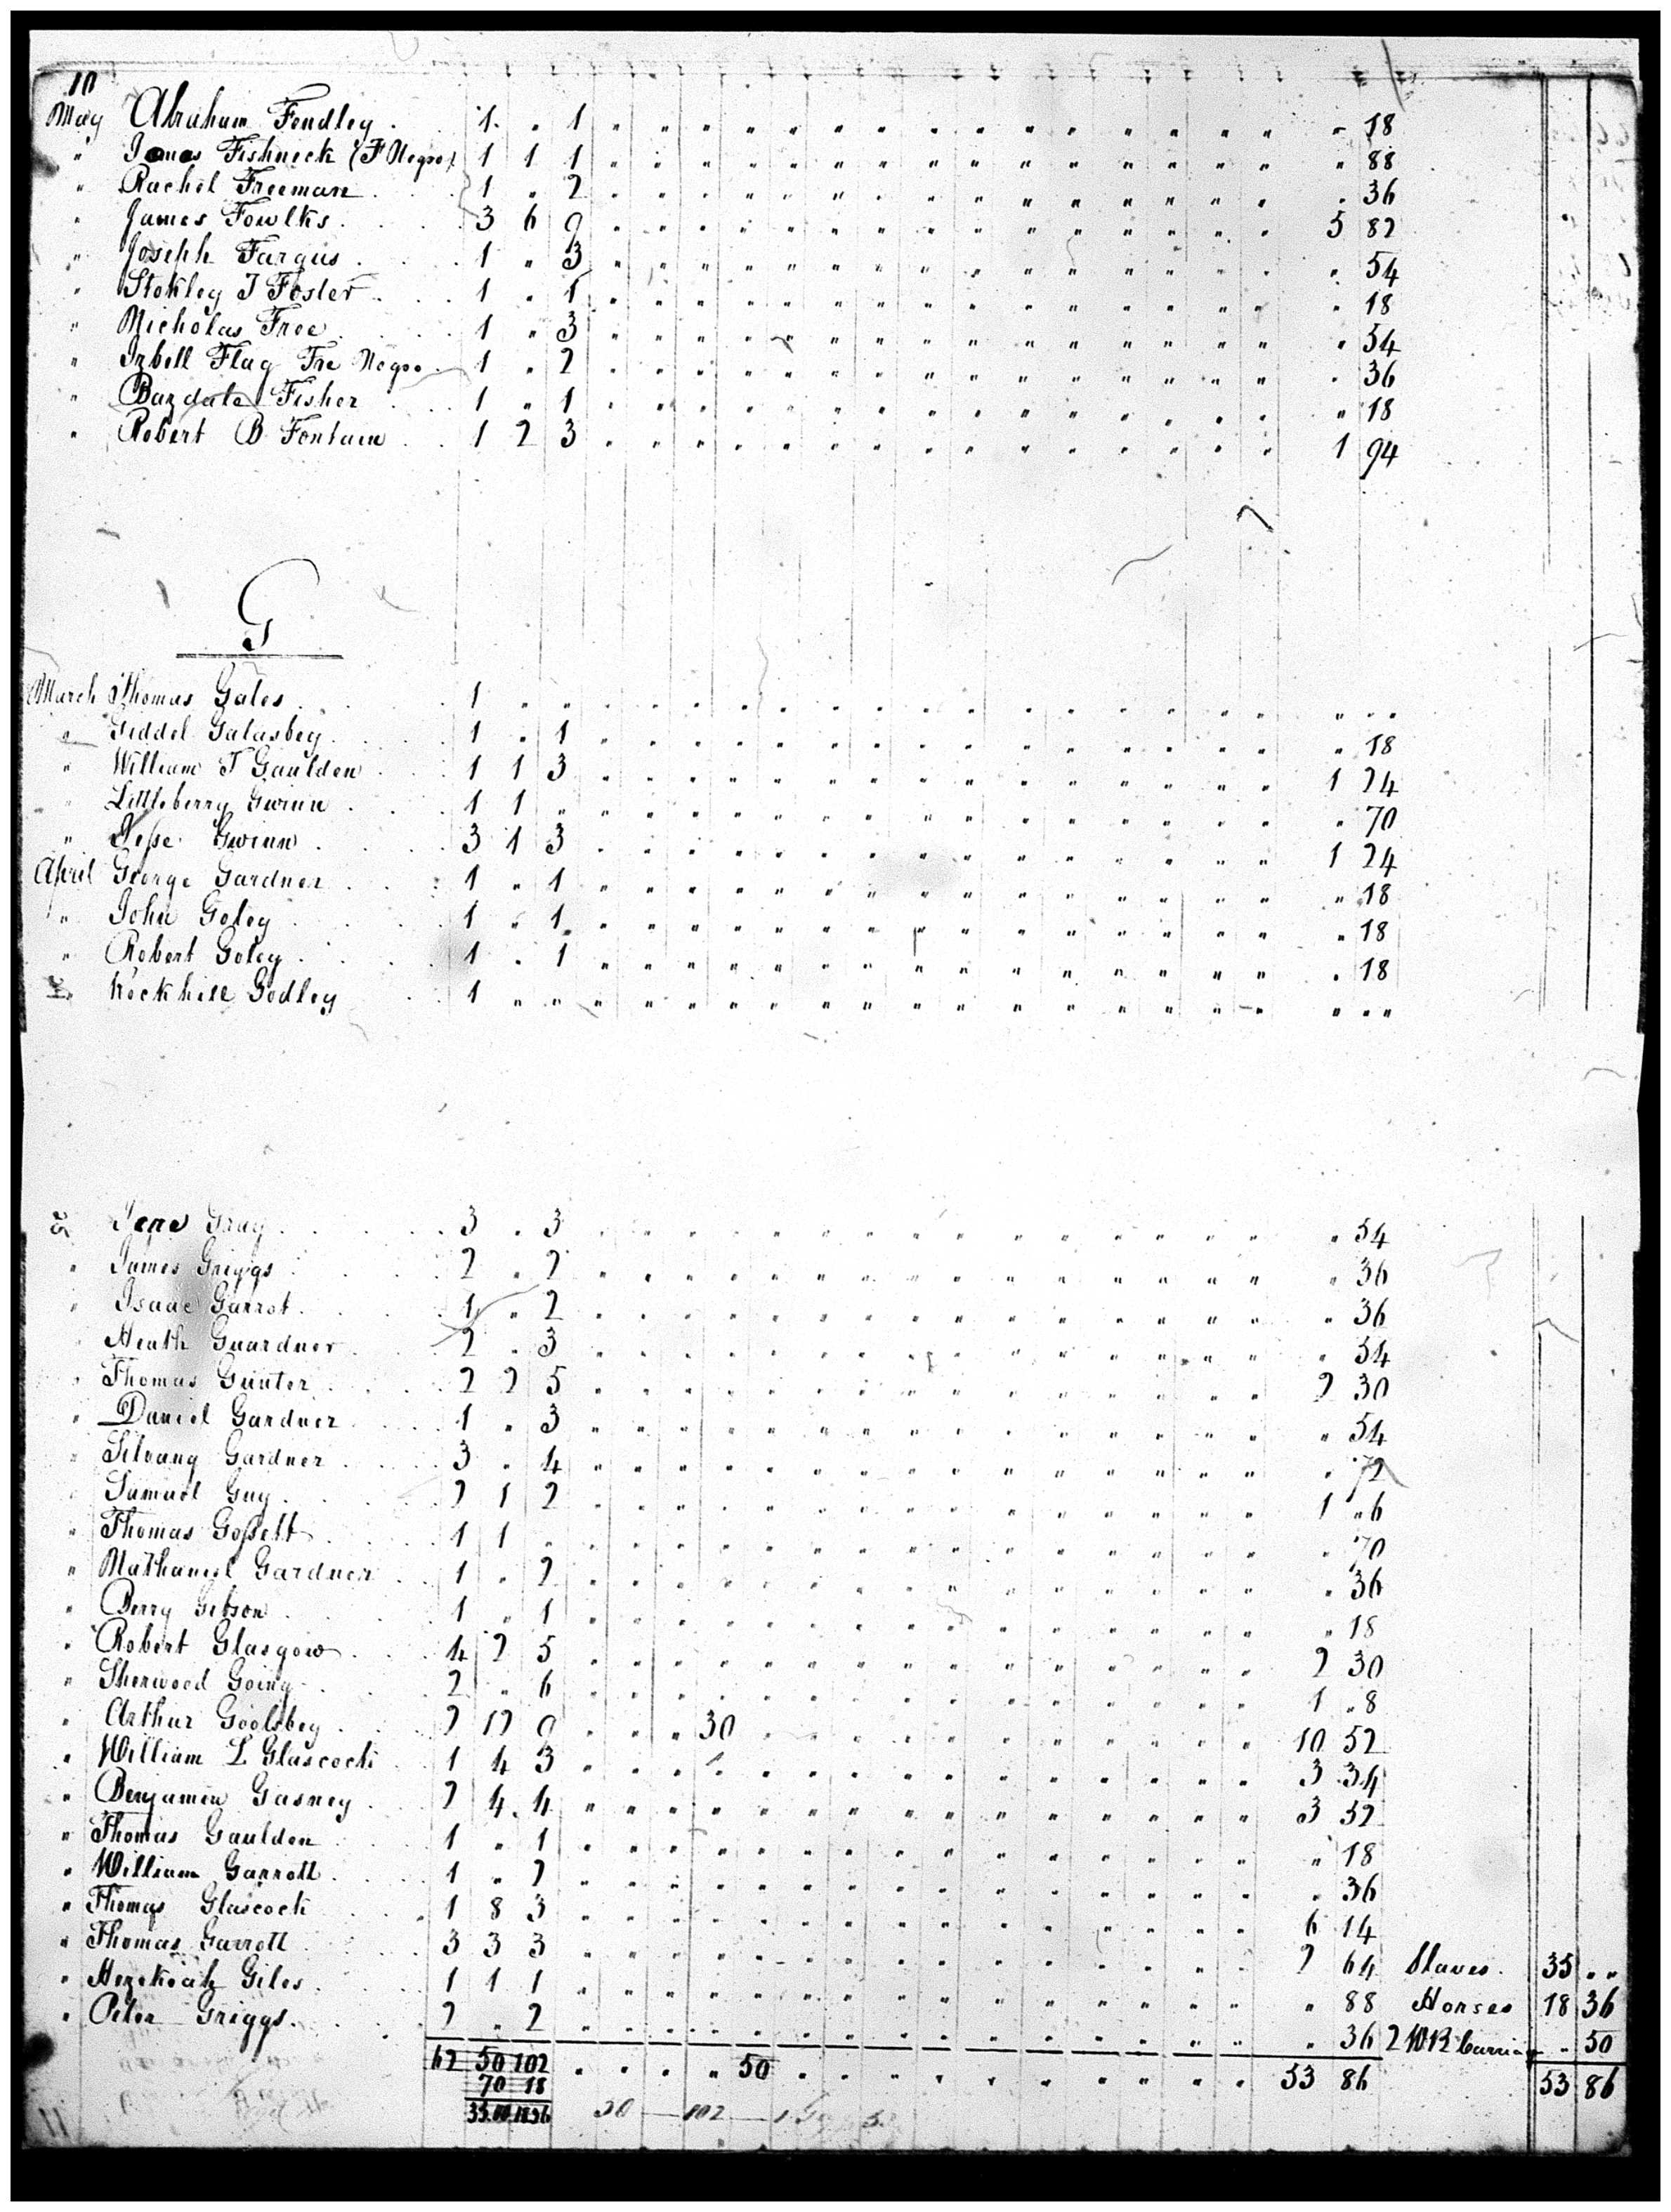 10
May Abraham Fendley . 1 " 1 " " " " " " " " " " " " " " " " " 18
" James Fishneck (F Negro) 1 1 1 " " " " " " " " " " " " " " " " " 88
" Rachel Freeman 1 " 2 " " " " " " " " " " " " " " " " " 36
" James Fowlks 3 6 9 " " " " " " " " " " " " " " " " 5 82
" Joseph Fargus 1 " 3 " " " " " " " " " " " " " " " " " 54
" Stokley J Foster 1 " 1 " " " " " " " " " " " " " " " " " 18
" Nicholas Free 1 " 3 " " " " " " " " " " " " " " " " " 54
" Izbell Flag Fre Negro 1 " 2 " " " " " " " " " " " " " " " " " 36
" Bazdale Fisher 1 " 1 " " " " " " " " " " " " " " " " " 18
" Robert B Fontain 1 2 3 " " " " " " " " " " " " " " " " 1 94
G
March Thomas Gales 1 " " " " " " " " " " " " " " " " " " " " "
" Giddel Galasbey 1 " 1 " " " " " " " " " " " " " " " " " 18
" William T Gaulden 1 1 3 " " " " " " " " " " " " " " " " 1 24
" Littleberry Gwinn 1 1 " " " " " " " " " " " " " " " " " " 70
" Jesse Gwinn 3 1 3 " " " " " " " " " " " " " " " " 1 24
April George Gardner 1 " 1 " " " " " " " " " " " " " " " " " 18
" John Goley 1 " 1 " " " " " " " " " " " " " " " " " 18
" Robert Goley 1 " 1 " " " " " " " " " " " " " " " " " 18
Rockhill Godley 1 " " " " " " " " " " " " " " " " " " " " "
Gray 3 " 3 " " " " " " " " " " " " " " " " " 54
" James Griggs 2 " 2 " " " " " " " " " " " " " " " " " 36
" Isaac Garrot 1 " 2 " " " " " " " " " " " " " " " " " 36
" Heath Guardner 2 " 3 " " " " " " " " " " " " " " " " " 54
" Thomas Gunter 2 2 5 " " " " " " " " " " " " " " " " 2 30
" Daniel Gardner 1 " 3 " " " " " " " " " " " " " " " " " 54
" Silvany Gardner 3 " 4 " " " " " " " " " " " " " " " " " 72
" Samuel Guy 2 1 2 " " " " " " " " " " " " " " " " 1 " 6
" Thomas Gossett 1 1 " " " " " " " " " " " " " " " " " " 70
" Nathaniel Gardner 1 " 2 " " " " " " " " " " " " " " " " " 36
" Berry Gibson 1 " 1 " " " " " " " " " " " " " " " " " 18
" Robert Glasgow 4 2 5 " " " " " " " " " " " " " " " " 2 30
" Sherwood Going 2 " 6 " " " " " " " " " " " " " " " " 1 " 8
" Arthur Goolsbey 2 12 9 " " " 30 " " " " " " " " " " " " 10 52
" William L Glascock 1 4 3 " " " " " " " " " " " " " " " " 3 34
" Benjamin Gasney 2 4 4 " " " " " " " " " " " " " " " " 3 52
" Thomas Gaulden 1 " 1 " " " " " " " " " " " " " " " " " 18
" William Garrott 1 " 2 " " " " " " " " " " " " " " " " " 36
" Thomas Glascock 1 8 3 " " " " " " " " " " " " " " " " 6 14
" Thomas Garrott 3 3 3 " " " " " " " " " " " " " " " " 2 64 Slaves 35 " "
" Hezekiah Giles 1 1 1 " " " " " " " " " " " " " " " " " 88 Horses 18 36
" Peter Griggs 2 " 2 " " " " " " " " " " " " " " " " " 36 2 W R Carriag " 50
62 50 102 " " " " 50 " " " " " " " " " " " 53 86 53 86
70 18
35.00 1836 50 102
11